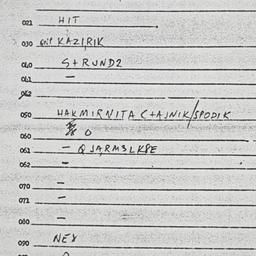 021 HIT
030 KAZIRIK
040 S+RUND2
041 -
042
050 HAKMIRNITA C+AJNIK/SPODIK
060 0
061 - QJARM3LKPE
062 -
070 -
071 -
080 -
090 NEX